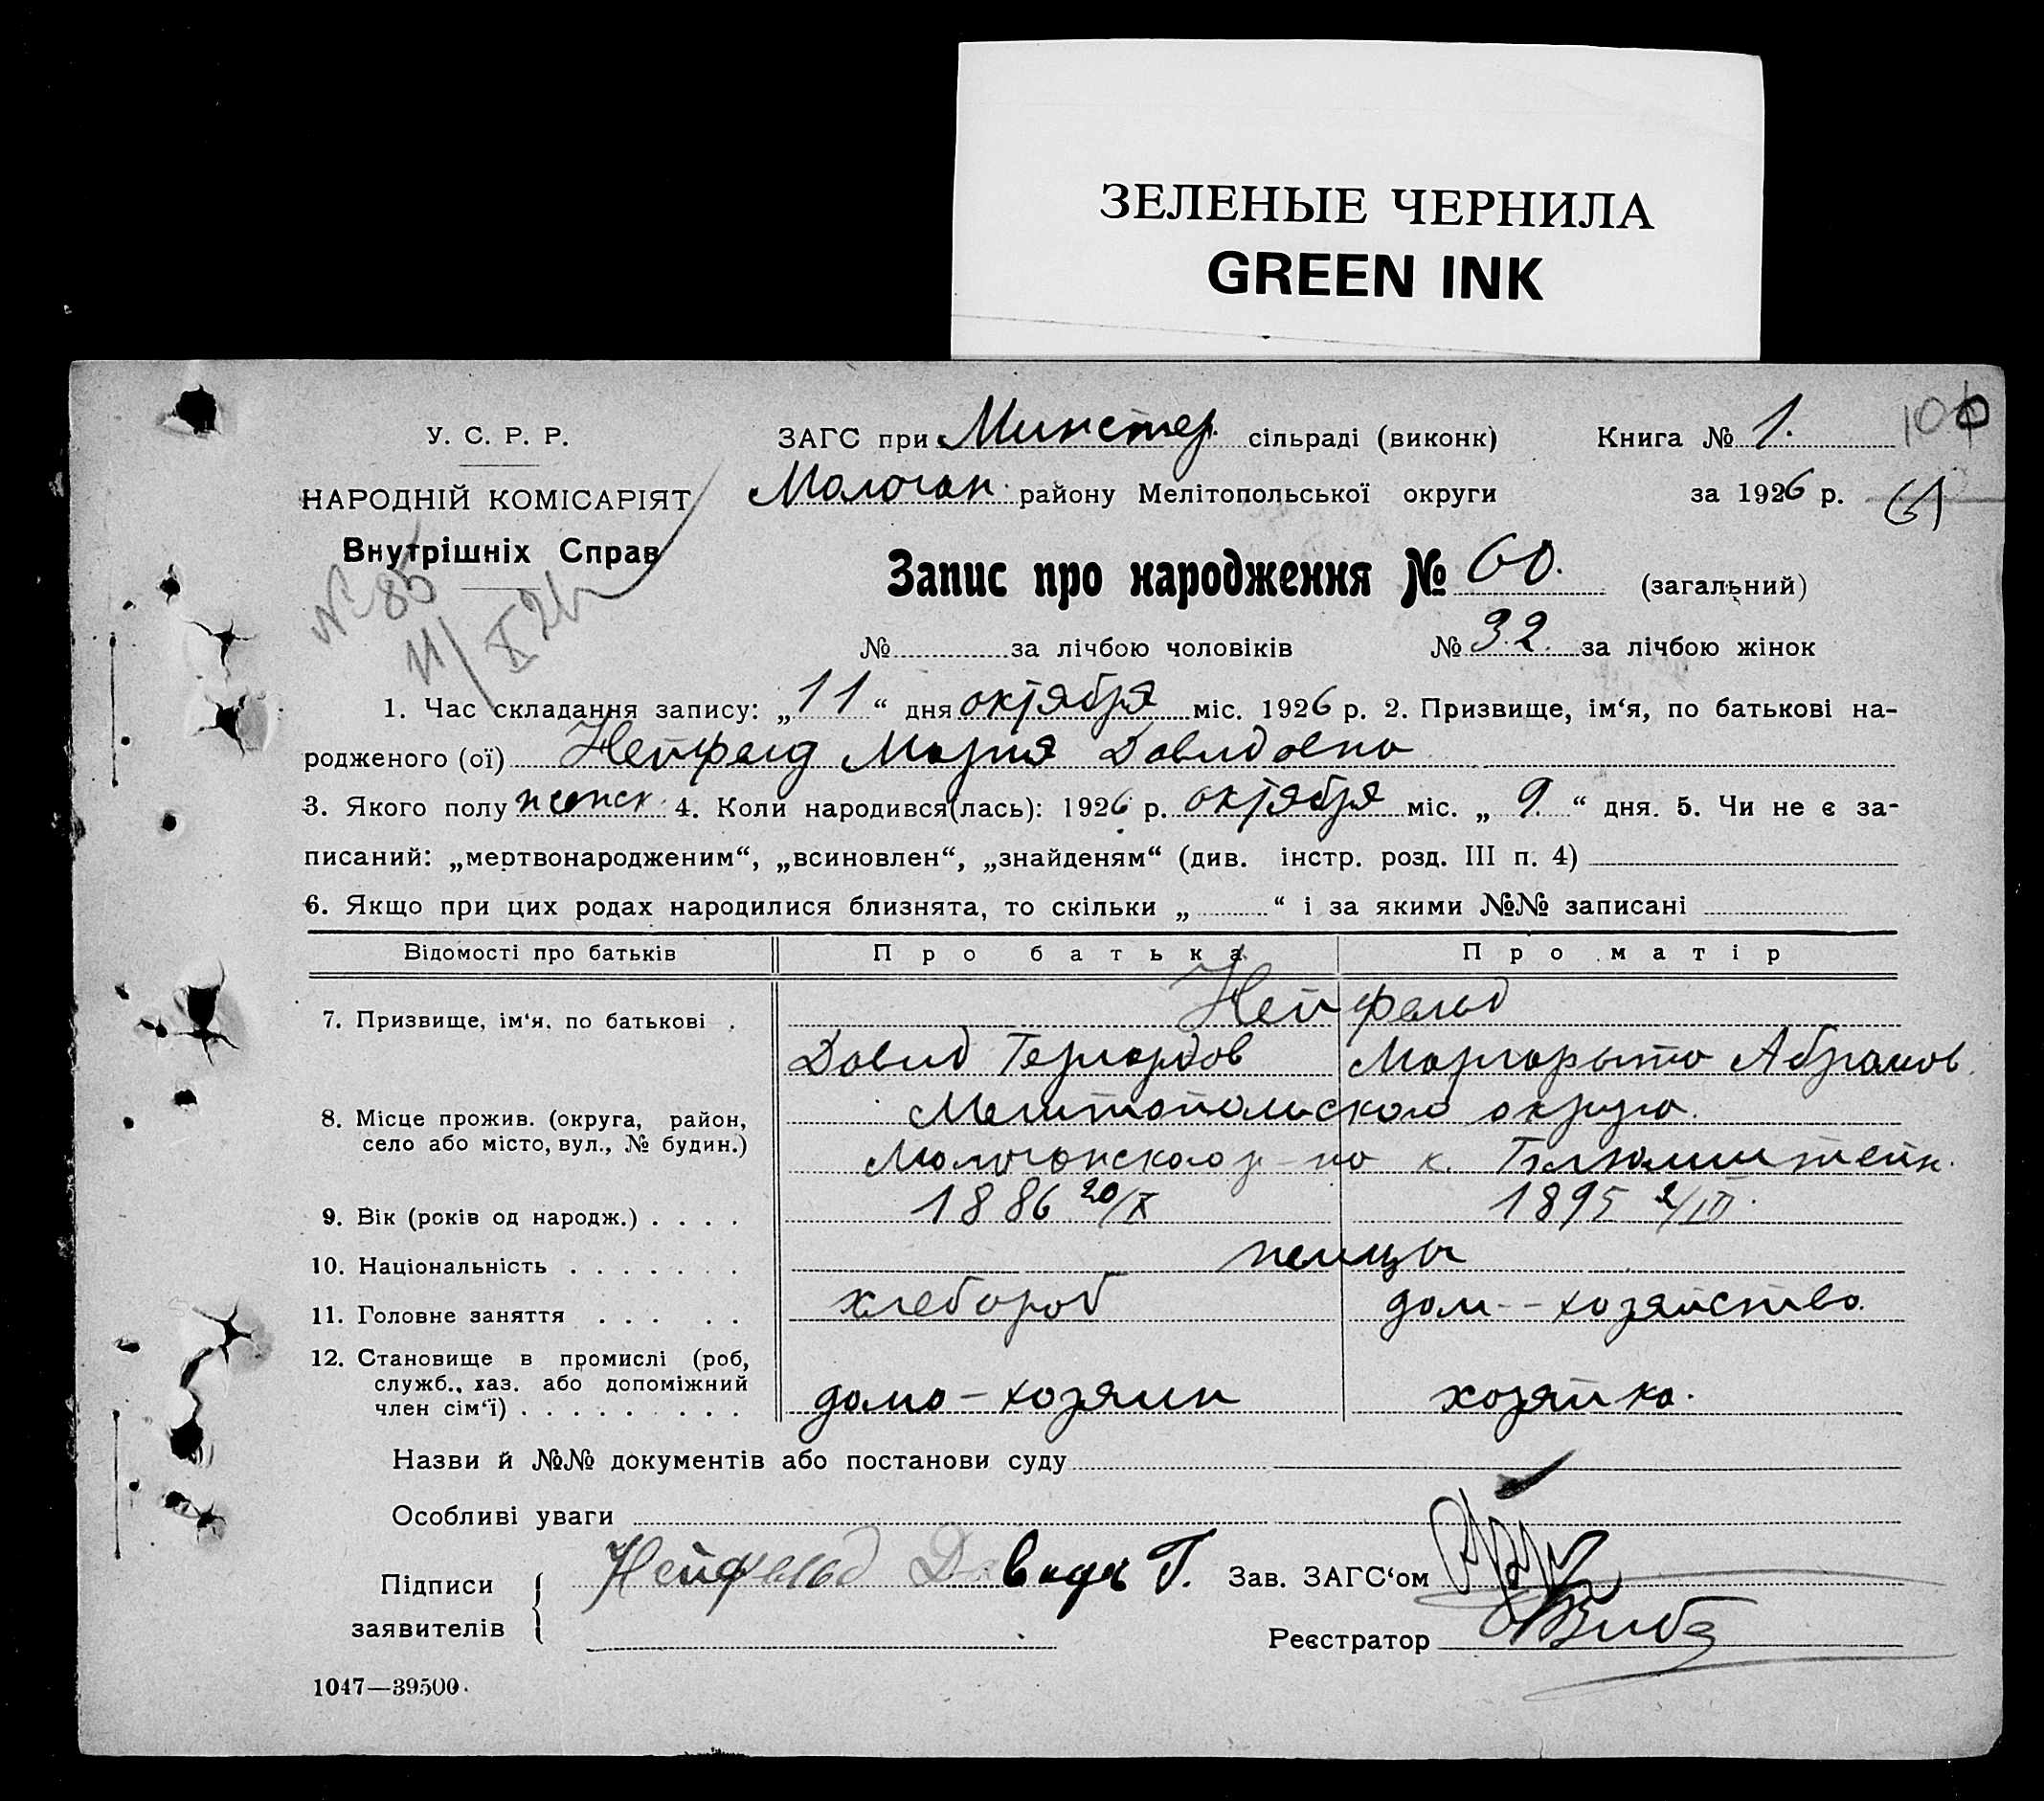 ЗЕЛЕНЫЕ ЧЕРНИЛА
GREEN INK
У. С. Р. Р.
НАРОДНІЙ КОМІСАРІЯТ
Внутрішніх Справ
№ 86
11/X 26
ЗАГС при Минстер. сільраді (виконк)
Книга № 1.
100
Молочан. району Мелітопольської округи
за 1926 р.
61
Запис про народження № 60. (загальний)
№ за лічбою чоловіків № 32 за лічбою жінок
1. Час складання запису: „11“ дня октября міс. 1926 р. 2. Призвище, ім‘я, по батькові на-
родженого (ої) Нейфелд Мария Давидовна
3. Якого полу женск. 4. Коли народився(лась): 1926 р. октября міс. „9.“ дня. 5. Чи не є за-
писаний: „мертвонародженим“, „всиновлен“, „знайденям“ (див. інстр. розд. III п. 4)
6. Якщо при цих родах народилися близнята, то скільки „ “ і за якими №№ записані
Відомості про батьків Про батька Про матір
7. Призвище, ім‘я, по батькові . Нейфельд
Давид Гергардов Маргарыта Абрамов.
8. Місце прожив. (округа, район,
село або місто, вул., № будин.)
Мелитопольского округа.
Молочанского р-на к. Блюмштейн.
9. Вік (років од народж.) . . . . 1886 20/X 1895 2/III.
10. Національність . . . . . . . немцы
11. Головне заняття . . . . . хлебороб дом-хозяйство.
12. Становище в промислі (роб,
служб., хаз. або допоміжний
член сім‘ї) . . . . . . . . . домо-хозяин хозяйка.
Назви й №№ документів або постанови суду
Особливі уваги
Підписи
заявителів
Нейфельд Давидъ Г.
Зав. ЗАГС‘ом
Реєстратор
1047—39500.